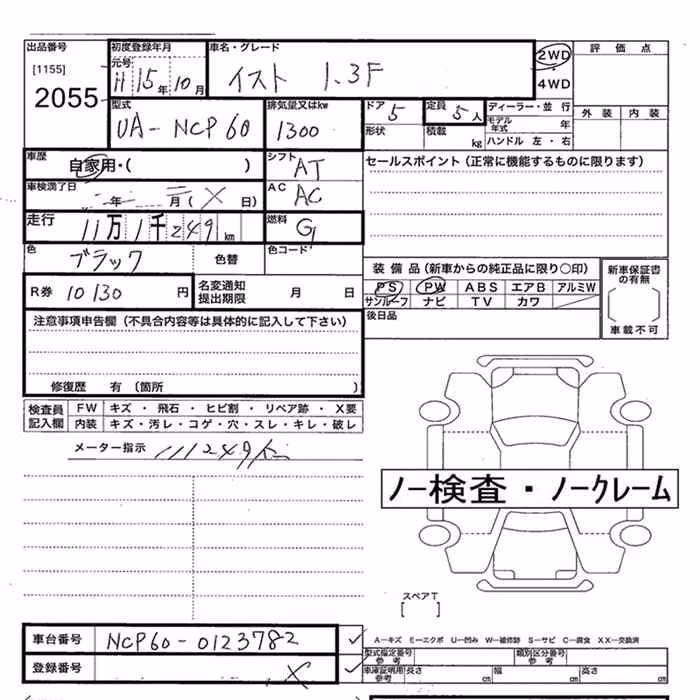 出品番号 初度登録年月 車名・グレード 2WD 評価点
[1155] 元号 H 15年 10月 イスト 1.3F 4WD
2055 型式 UA-NCP60 排気量又はkw 1300 ドア 5 定員 5人 ディーラー・並行 外装 内装
形状 積載 kg モデル年式 年
ハンドル 左・右
車歴 自家用・( ) シフト AT セールスポイント (正常に機能するものに限ります)
車検満了日 年 月( X 日) AC AC
走行 11万1千249km 燃料 G
色 ブラック 色替 色コード
装備品 (新車からの純正品に限り○印) 新車保証書の有無
R券 10130円 名変通知提出期限 月 日 PS PW ABS エアB アルミW
サンルーフ ナビ TV カワ 車載不可
注意事項申告欄 (不具合内容等は具体的に記入して下さい) 後日品
修復歴 有 (箇所 )
検査員 FW キズ・飛石・ヒビ割・リペア跡・X要
記入欄 内装 キズ・汚レ・コゲ・穴・スレ・キレ・破レ
メーター指示 111249km
ノー検査・ノークレーム
スペアT
[ ]
車台番号 NCP60-0123782 A-キズ E-エクボ U-凹み W-補修跡 S-サビ C-腐食 XX-交換済
登録番号 X 型式指定番号 参考 類別区分番号 参考
車庫証明用 参考 長さ cm 幅 cm 高さ cm